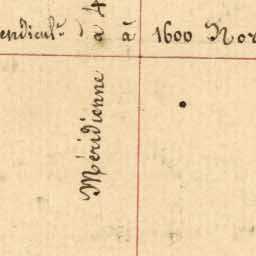 endicul.re à 4 à 1600 Nor
Méridienne